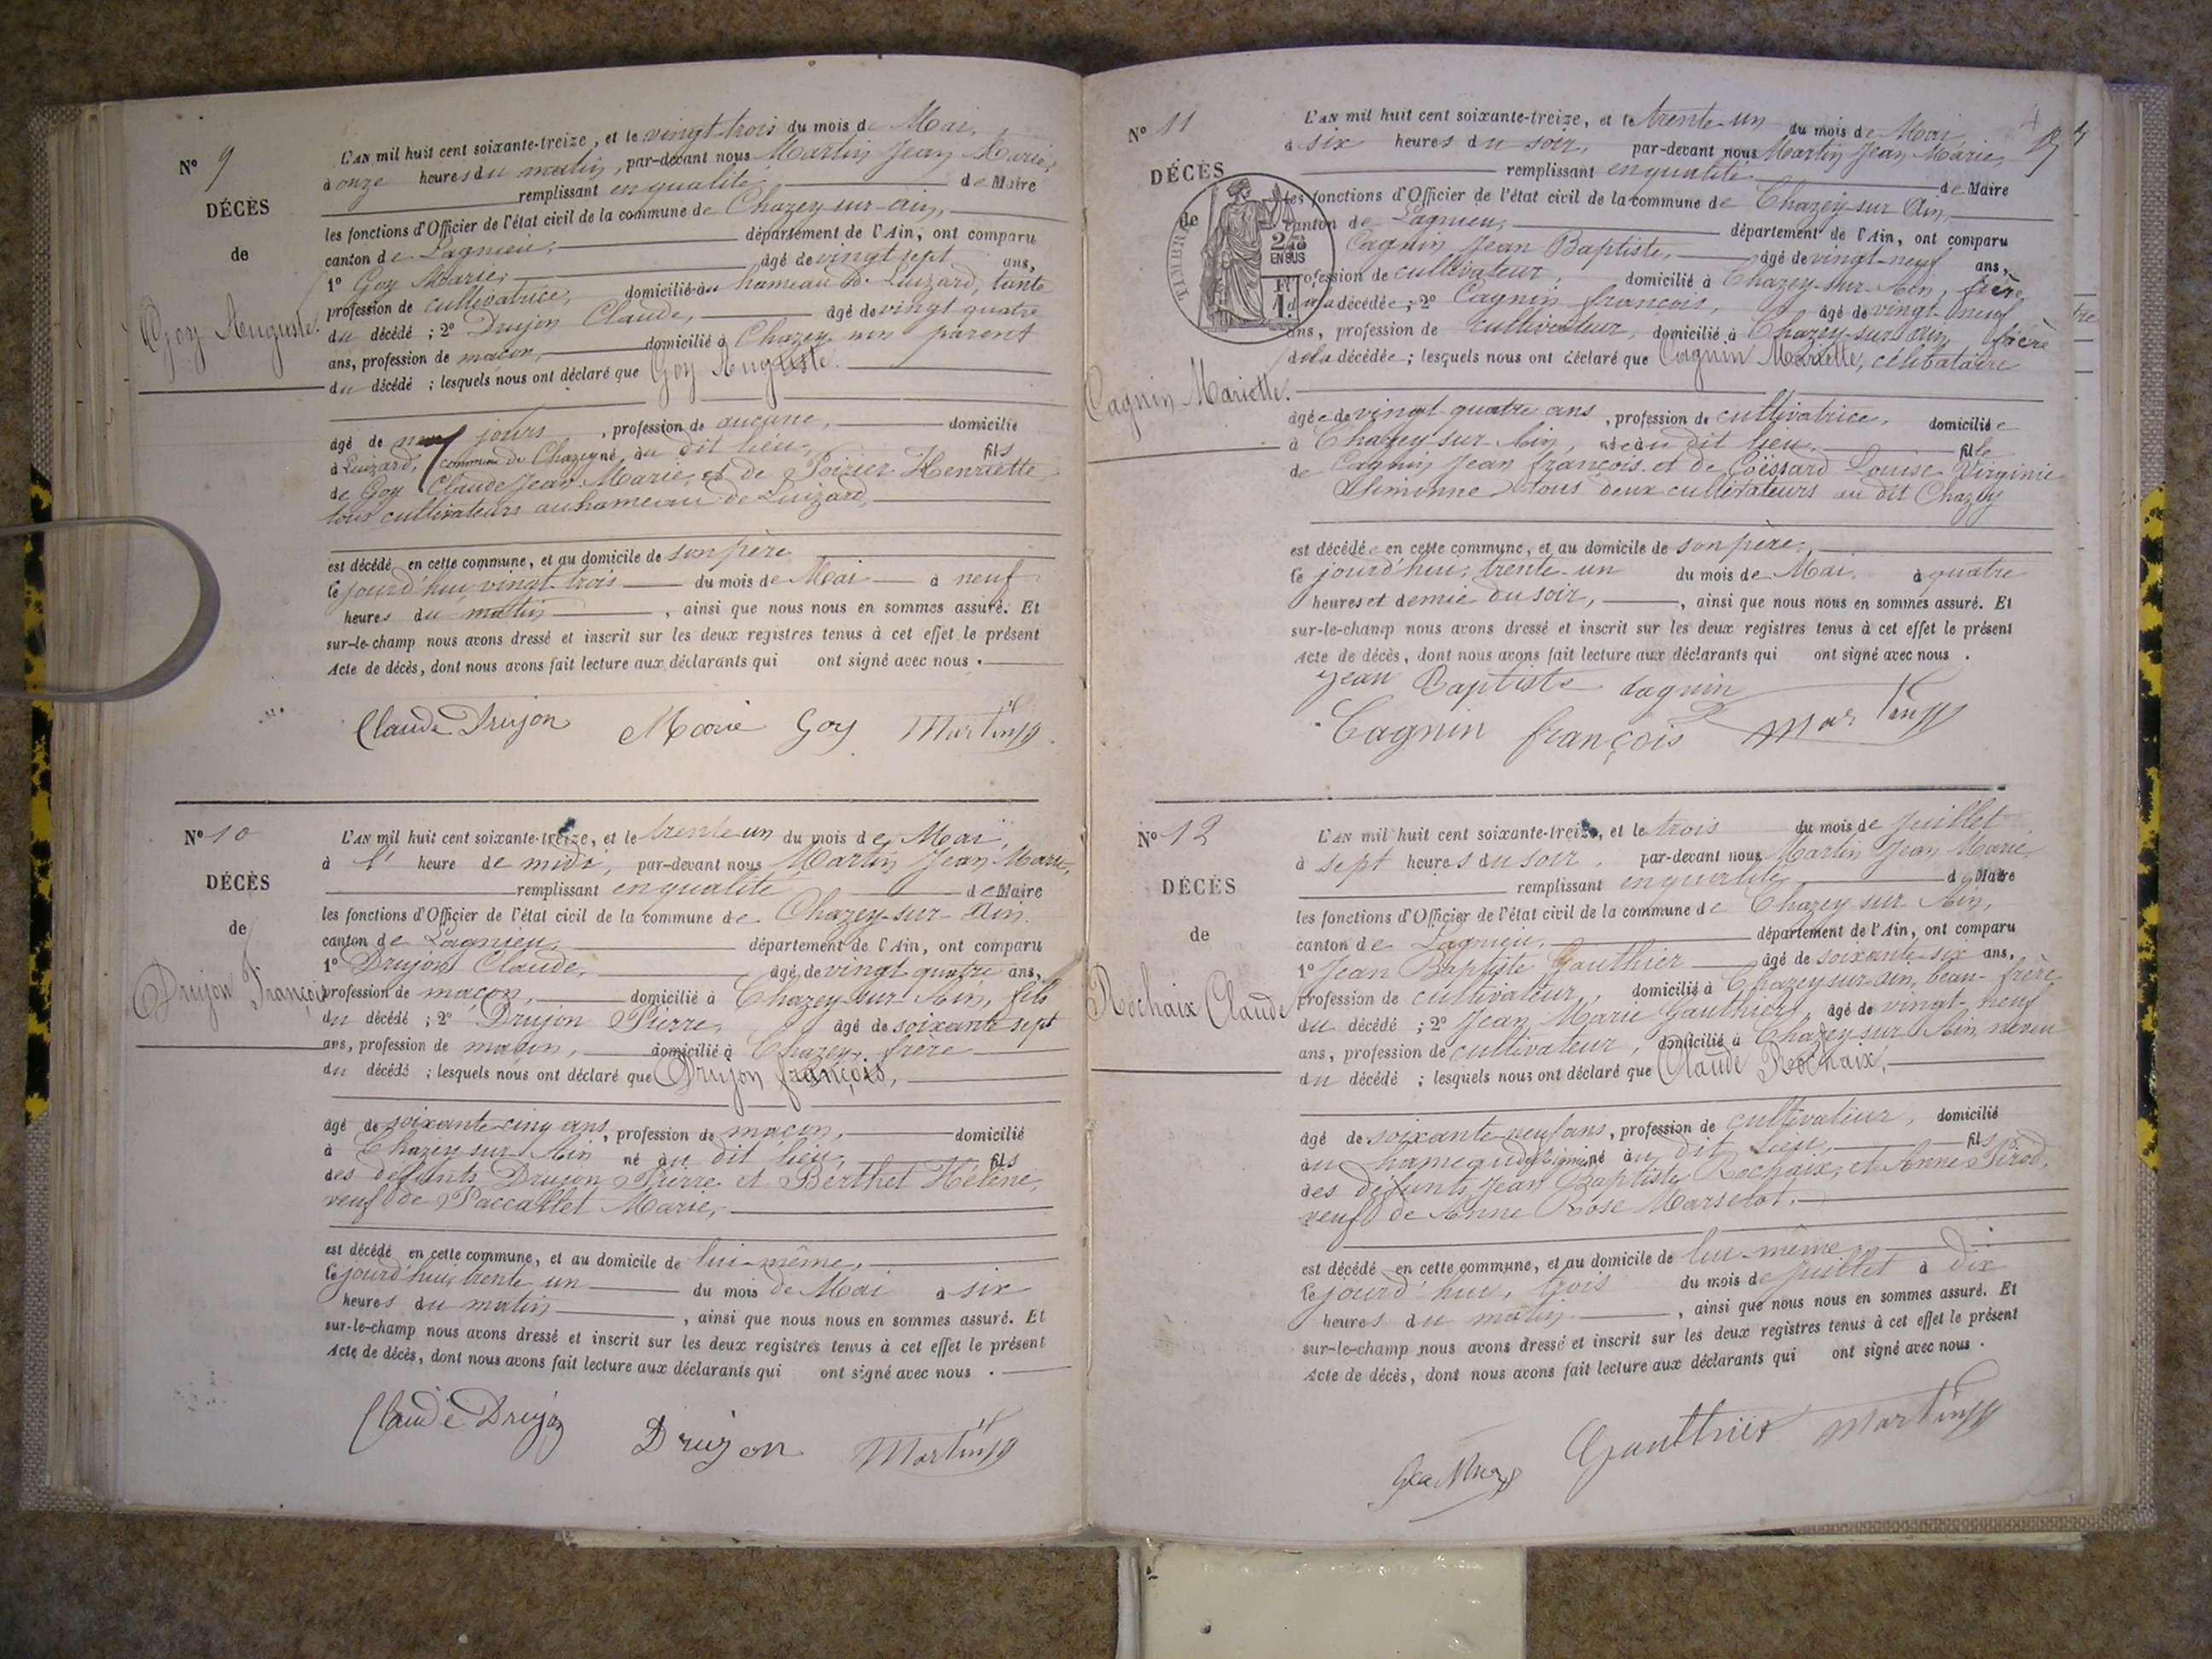 N° 9
DÉCÈS
de
Goy Auguste.
L'AN mil huit cent soixante-treize, et le vingt-trois du mois de Mai,
à onze heures du matin, par-devant nous Martin Jean Marie,
remplissant en qualité de Maire
les fonctions d'Officier de l'état civil de la commune de Chazey-sur-ain,
canton de Lagnieu, département de l'Ain, ont comparu
1° Goy Marie, âgé de vingt sept ans,
profession de cultivatrice, domicilié au hameau de Luizard, tante
du décédé ; 2° Drujon Claude, âgé de vingt quatre
ans, profession de maçon, domicilié à Chazey, non parent
du décédé ; lesquels nous ont déclaré que Goy Auguste.
âgé de neuf jours, profession de aucune, domicilié
à Luizard, commune de Chazey né au dit lieu, fils
de Goy Claude Jean Marie, et de Poirier Henriette
tous cultivateurs au hameau de Luizard,
est décédé en cette commune, et au domicile de son père
le jourd'hui vingt trois du mois de Mai à neuf
heures du matin, ainsi que nous nous en sommes assuré. Et
sur-le-champ nous avons dressé et inscrit sur les deux registres tenus à cet effet le présent
Acte de décès, dont nous avons fait lecture aux déclarants qui ont signé avec nous.
Claude Drujon Marie Goy Martin
N° 10
DÉCÈS
de
Drujon François
L'AN mil huit cent soixante-treize, et le trente un du mois de Mai,
à l' heure de midi, par-devant nous Martin Jean Marie,
remplissant en qualité de Maire
les fonctions d'Officier de l'état civil de la commune de Chazey-sur-Ain.
canton de Lagnieu, département de l'Ain, ont comparu
1° Drujon Claude, âgé de vingt quatre ans,
profession de maçon, domicilié à Chazey-sur-Ain, fils
du décédé ; 2° Drujon Pierre, âgé de soixante sept
ans, profession de maçon, domicilié à Chazey, frère
du décédé ; lesquels nous ont déclaré que Drujon françois,
âgé de soixante-cinq ans, profession de maçon, domicilié
à Chazey-sur-Ain né au dit lieu, fils
des défunts Drujon Pierre et Berthet Hélène,
veuf de Paccallet Marie,
est décédé en cette commune, et au domicile de lui-même,
le jourd'hui trente un du mois de Mai à six
heures du matin, ainsi que nous nous en sommes assuré. Et
sur-le-champ nous avons dressé et inscrit sur les deux registres tenus à cet effet le présent
Acte de décès, dont nous avons fait lecture aux déclarants qui ont signé avec nous.
Claude Drujon Drujon Martin
N° 11
DÉCÈS
de
Cagnin Mariette.
TIMBRE
2/10
EN SUS
1 F
L'AN mil huit cent soixante-treize, et le trente-un du mois de Mai
à six heures du soir, par-devant nous Martin Jean Marie,
remplissant en qualité de Maire
les fonctions d'Officier de l'état civil de la commune de Chazey-sur Ain,
canton de Lagnieu, département de l'Ain, ont comparu
Cagnin Jean Baptiste, âgé de vingt-neuf ans,
profession de cultivateur, domicilié à Chazey-sur-Ain, frère
de la décédée ; 2° Cagnin françois, âgé de vingt-neuf
ans, profession de cultivateur, domicilié à Chazey-sur ain, frère
de la décédée ; lesquels nous ont déclaré que Cagnin Mariette, célibataire
âgée de vingt quatre ans, profession de cultivatrice, domiciliée
à Chazey-sur-Ain, née au dit lieu, fille
de Cagnin Jean françois et de Coëssard Louise-Virginie
tous deux cultivateurs au dit Chazey
est décédée en cette commune, et au domicile de son père,
le jourd'hui, trente-un du mois de Mai, à quatre
heures et demie du soir, ainsi que nous nous en sommes assuré. Et
sur-le-champ nous avons dressé et inscrit sur les deux registres tenus à cet effet le présent
Acte de décès, dont nous avons fait lecture aux déclarants qui ont signé avec nous.
Jean Baptiste Cagnin
Cagnin françois Martin
N° 12
DÉCÈS
de
Rochaix Claude
L'AN mil huit cent soixante-treize, et le trois du mois de Juillet
à sept heures du soir, par-devant nous Martin Jean Marie,
remplissant en qualité de Maire
les fonctions d'Officier de l'état civil de la commune de Chazey sur Ain,
canton de Lagnieu, département de l'Ain, ont comparu
1° Jean Baptiste Gauthier âgé de soixante-six ans,
profession de cultivateur, domicilié à Chazey-sur-ain, beau-frère
du décédé ; 2° Jean Marie Gauthier, âgé de vingt-neuf
ans, profession de cultivateur, domicilié à Chazey-sur Ain, neveu
du décédé ; lesquels nous ont déclaré que Claude Rochaix,
âgé de soixante-neuf ans, profession de cultivateur, domicilié
au hameau né au dit lieu, fils
des défunts Jean Baptiste Rochaix, et Anne Pirod,
veuf de Anne Rose Marselot.
est décédé en cette commune, et au domicile de lui-même
le jourd'hui, trois du mois de Juillet à dix
heures du matin, ainsi que nous nous en sommes assuré. Et
sur-le-champ nous avons dressé et inscrit sur les deux registres tenus à cet effet le présent
Acte de décès, dont nous avons fait lecture aux déclarants qui ont signé avec nous.
Gauthier Martin